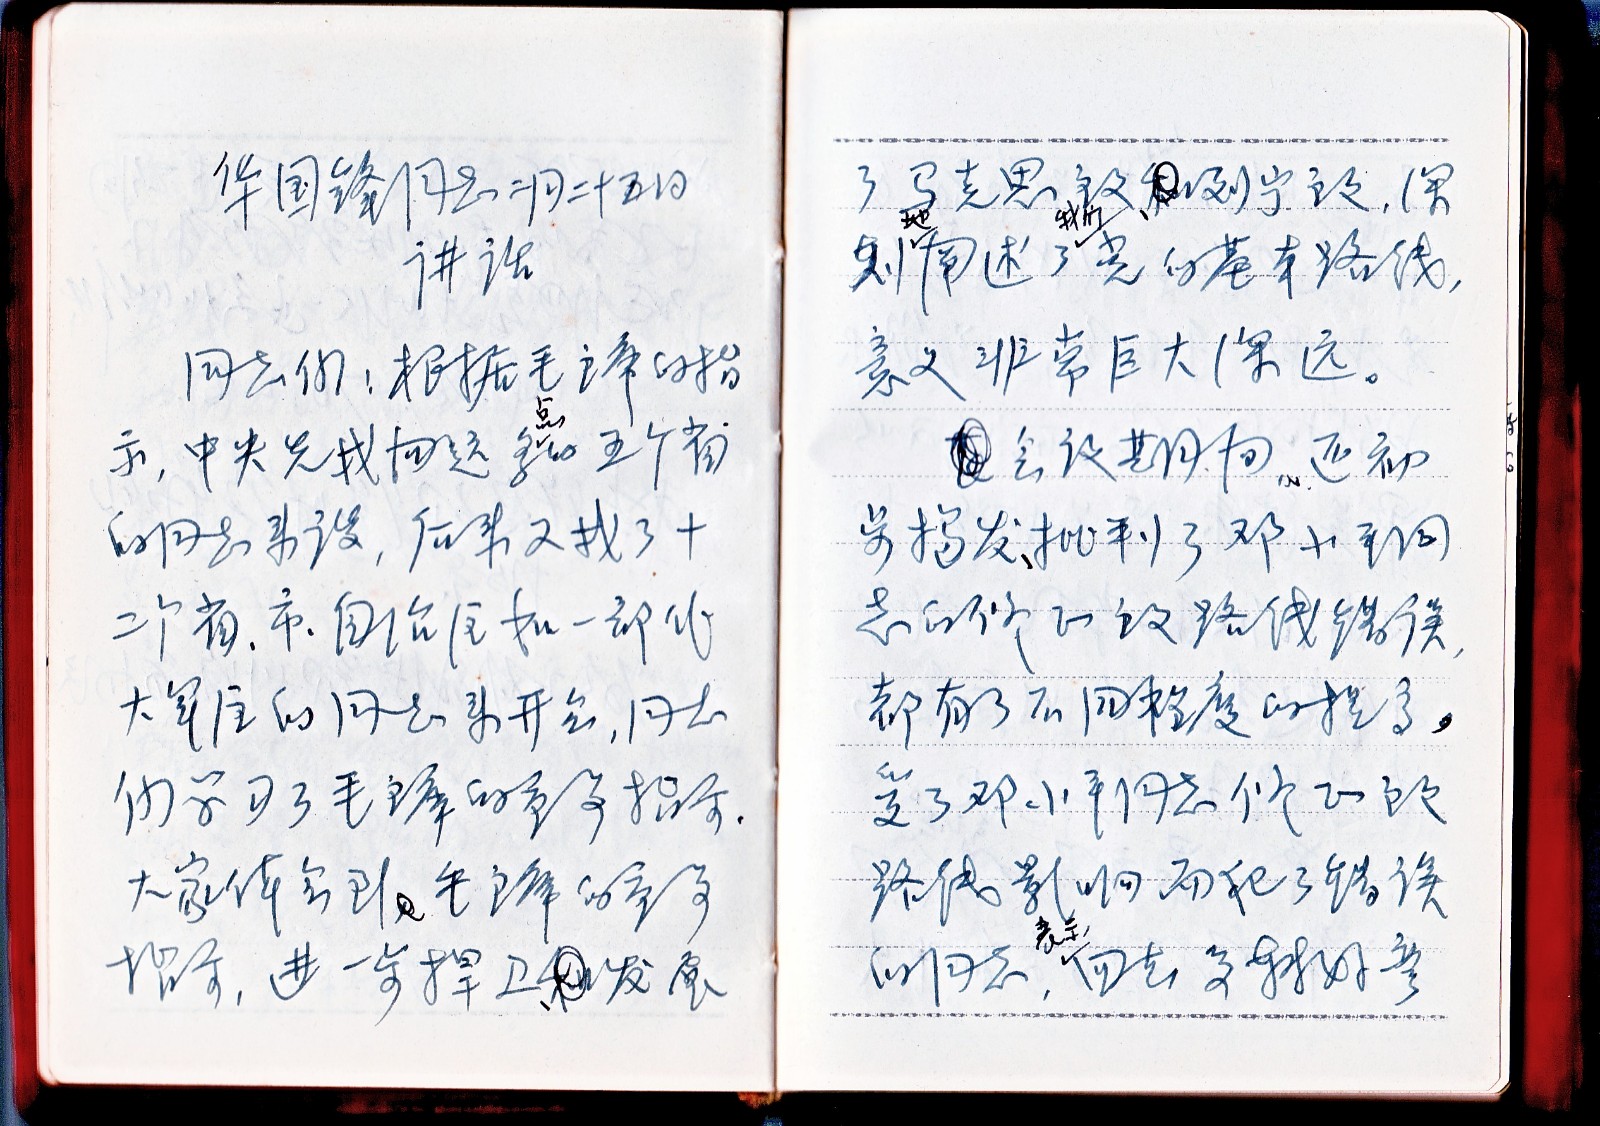 华国锋同志二月二十五日
讲话
同志们：根据毛主席的指
示，中央先找问题多点的五个省
的同志来谈，后来又找了十
二个省、市、自治区和一部份
大军区的同志来开会，同志
们学习了毛主席的重要指示。
大家体会到，毛主席的重要
指示，进一步捍卫、发展
了马克思主义、列宁主义，深
刻地阐述了我们党的基本路线，
意义非常巨大深远。
会议期间，还初
步揭发、批判了邓小平同
志的修正主义路线错误，
都有了不同程度的提高。
受了邓小平同志修正主义
路线影响而犯了错误
的同志，表示回去要转好弯